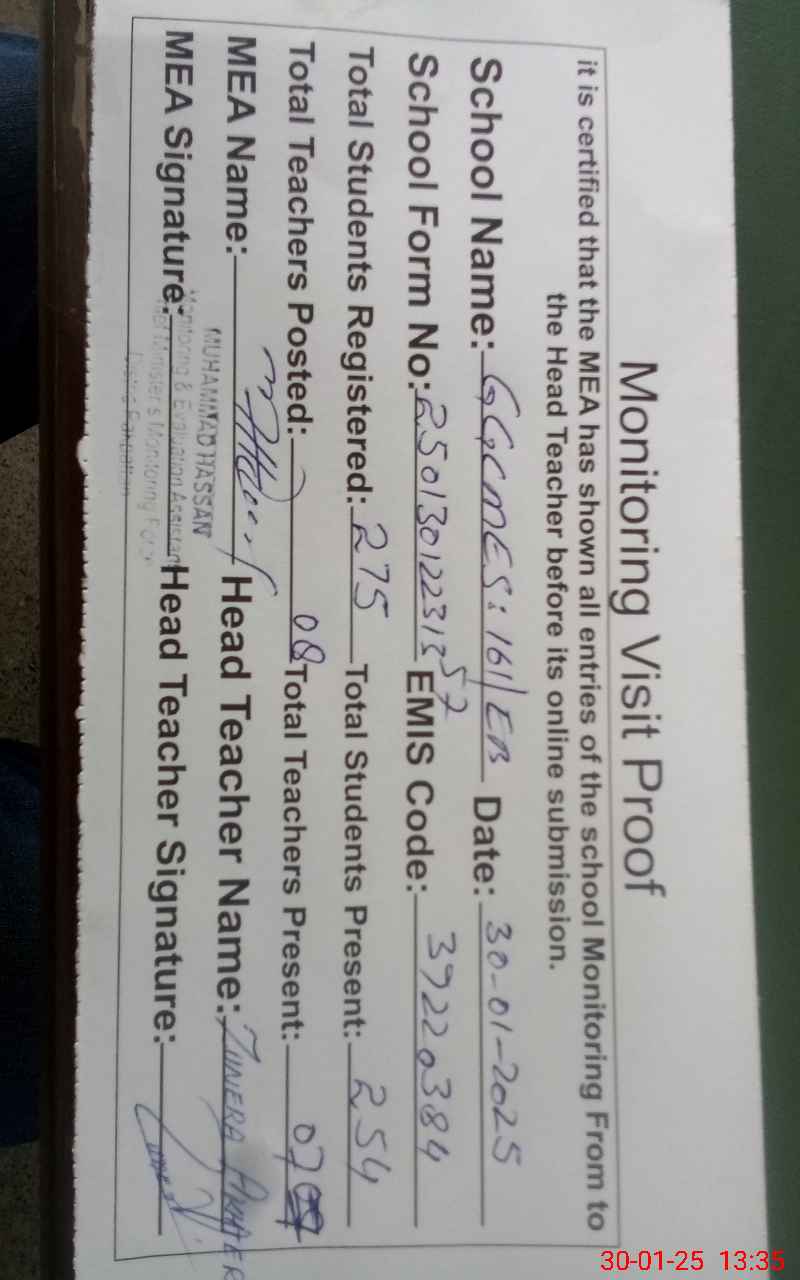 Monitoring Visit Proof
it is certified that the MEA has shown all entries of the school Monitoring From to
the Head Teacher before its online submission.
School Name: GGCMES: 161/EB Date: 30-01-2025
School Form No: EMIS Code: 39220384
Total Students Registered: 275 Total Students Present: 254
Total Teachers Posted: 08 Total Teachers Present: 07
MEA Name: Head Teacher Name: ZUNERA AKHTER
MUHAMMAD HASSAN
MEA Signature: Head Teacher Signature:
Monitoring & Evaluation Assistant
Chief Minister's Monitoring Force
30-01-25 13:35